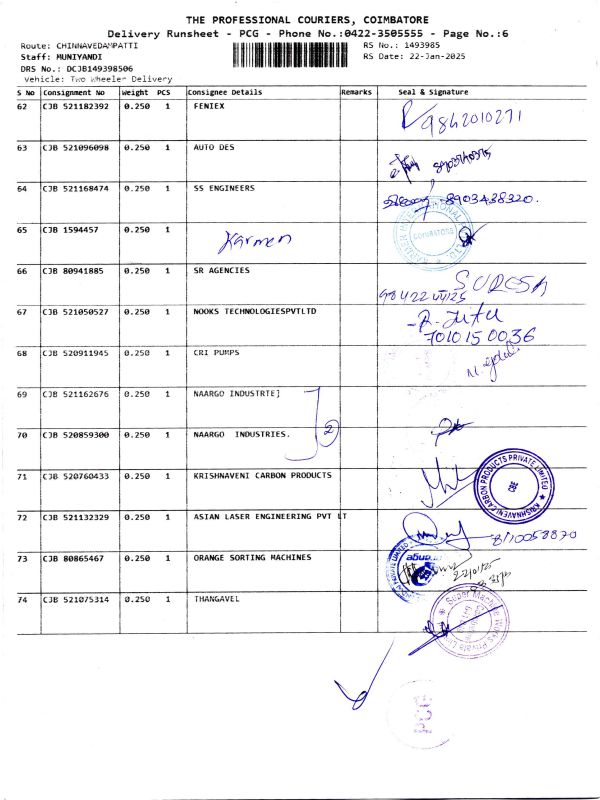 THE PROFESSIONAL COURIERS, COIMBATORE
Delivery Runsheet - PCG - Phone No.:0422-3505555 - Page No.:6
Route: CHINNAVEDAMPATTI RS No.: 1493985
Staff: MUNIYANDI RS Date: 22-Jan-2025
DRS No.: DCJB149398506
Vehicle: Two Wheeler Delivery
S No Consignment No Weight PCS Consignee Details Remarks Seal & Signature
62 CJB 521182392 0.250 1 FENIEX 9842010271
63 CJB 521096098 0.250 1 AUTO DES
64 CJB 521168474 0.250 1 SS ENGINEERS 8903438320.
65 CJB 1594457 0.250 1 Karmen COIMBATORE
66 CJB 80941885 0.250 1 SR AGENCIES
67 CJB 521050527 0.250 1 NOOKS TECHNOLOGIESPVTLTD 7010150036
68 CJB 520911945 0.250 1 CRI PUMPS
69 CJB 521162676 0.250 1 NAARGO INDUSTRTE]
70 CJB 520859300 0.250 1 NAARGO INDUSTRIES. 2
71 CJB 520760433 0.250 1 KRISHNAVENI CARBON PRODUCTS KRISHNAVENI CARBON PRODUCTS PRIVATE LIMITED CBE
72 CJB 521132329 0.250 1 ASIAN LASER ENGINEERING PVT LT 8110058870
73 CJB 80865467 0.250 1 ORANGE SORTING MACHINES 22/01/25
74 CJB 521075314 0.250 1 THANGAVEL
PCE